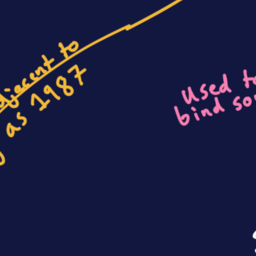 jacent to
as 1987
Used to
bind so